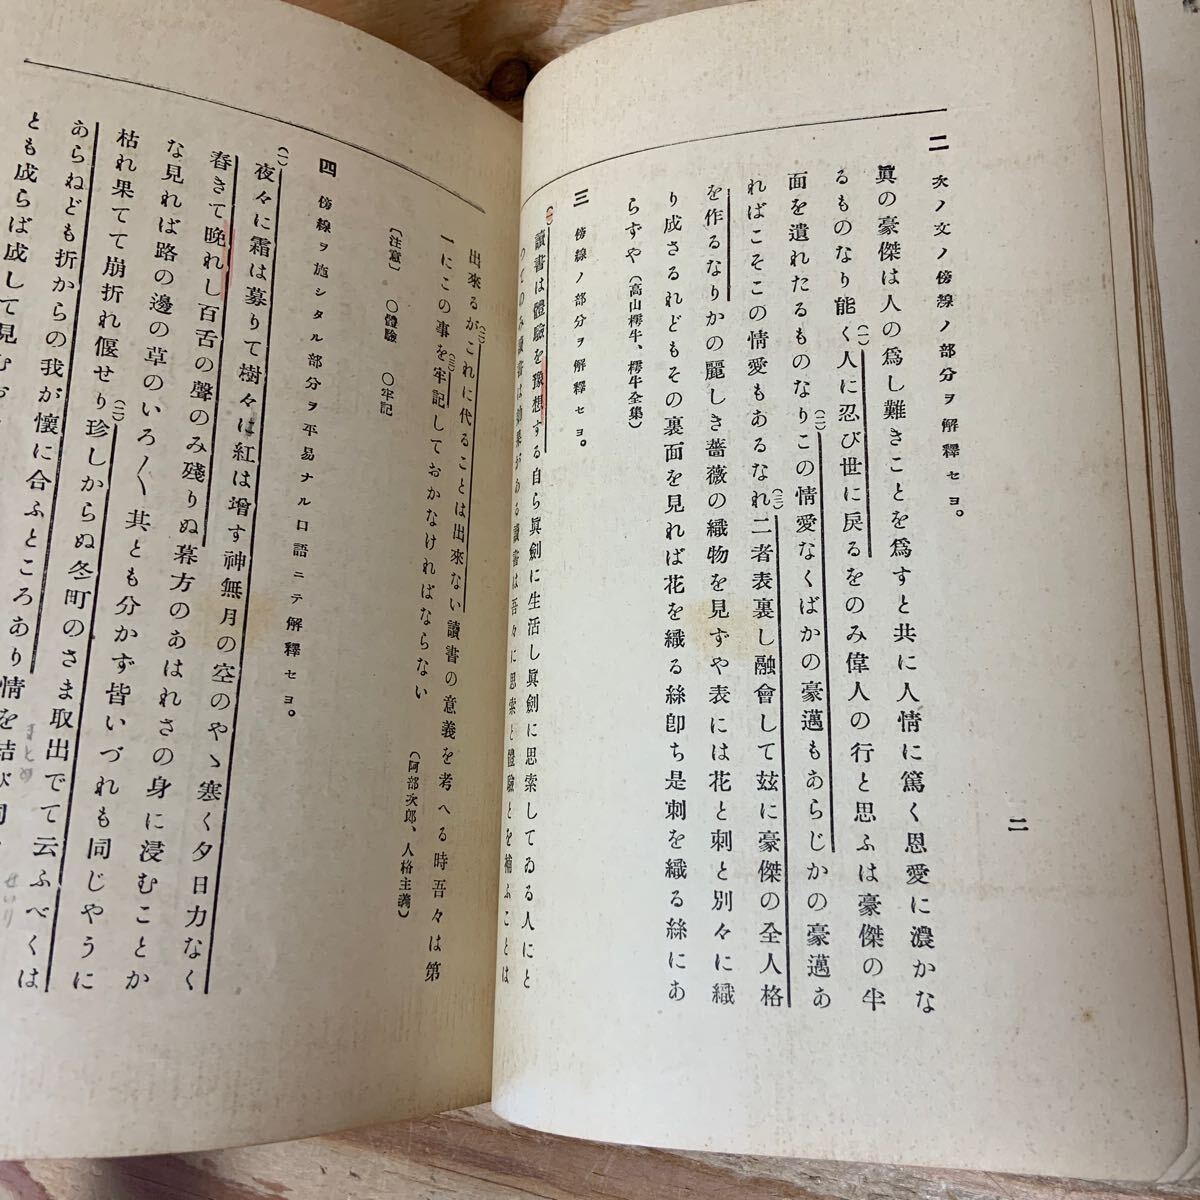 二
二 次ノ文ノ傍線ノ部分ヲ解釋セヨ。
眞の豪傑は人の爲し難きことを爲すと共に人情に篤く恩愛に濃かな
るものなり能く(一)人に忍び世に戻るをのみ偉人の行と思ふは豪傑の半
面を遺れたるものなり(二)この情愛なくばかの豪邁もあらじかの豪邁あ
ればこそこの情愛もあるなれ(三)二者表裏し融會して玆に豪傑の全人格
を作るなりかの麗しき薔薇の織物を見ずや表には花と刺と別々に織
り成さるれどもその裏面を見れば花を織る絲卽ち是刺を織る絲にあ
らずや(高山樗牛、樗牛全集)
三 傍線ノ部分ヲ解釋セヨ。
(一)讀書は體驗を豫想する自ら眞劍に生活し眞劍に思索してゐる人にと
つてのみ讀書は効果がある讀書は吾々に思索と體驗とを補ふことは
出來るが(二)これに代ることは出來ない讀書の意義を考へる時吾々は第
一にこの事を(三)牢記しておかなければならない
(阿部次郎、人格主義)
〔注意〕 ○體驗 ○牢記
四 傍線ヲ施シタル部分ヲ平易ナル口語ニテ解釋セヨ。
(一)夜々に霜は募りて樹々に紅は增す神無月の空のやゝ寒く夕日力なく
舂きて晩れし百舌の聲のみ殘りぬ暮方のあはれさの身に浸むことか
な見れば路の邊の草のいろ〱其とも分かず皆いづれも同じやうに
枯れ果てて崩折れ偃せり(二)珍しからぬ冬町のさま取出でて云ふべくは
あらねども折からの我が懷に合ふところあり情を
とも成らば成して見む